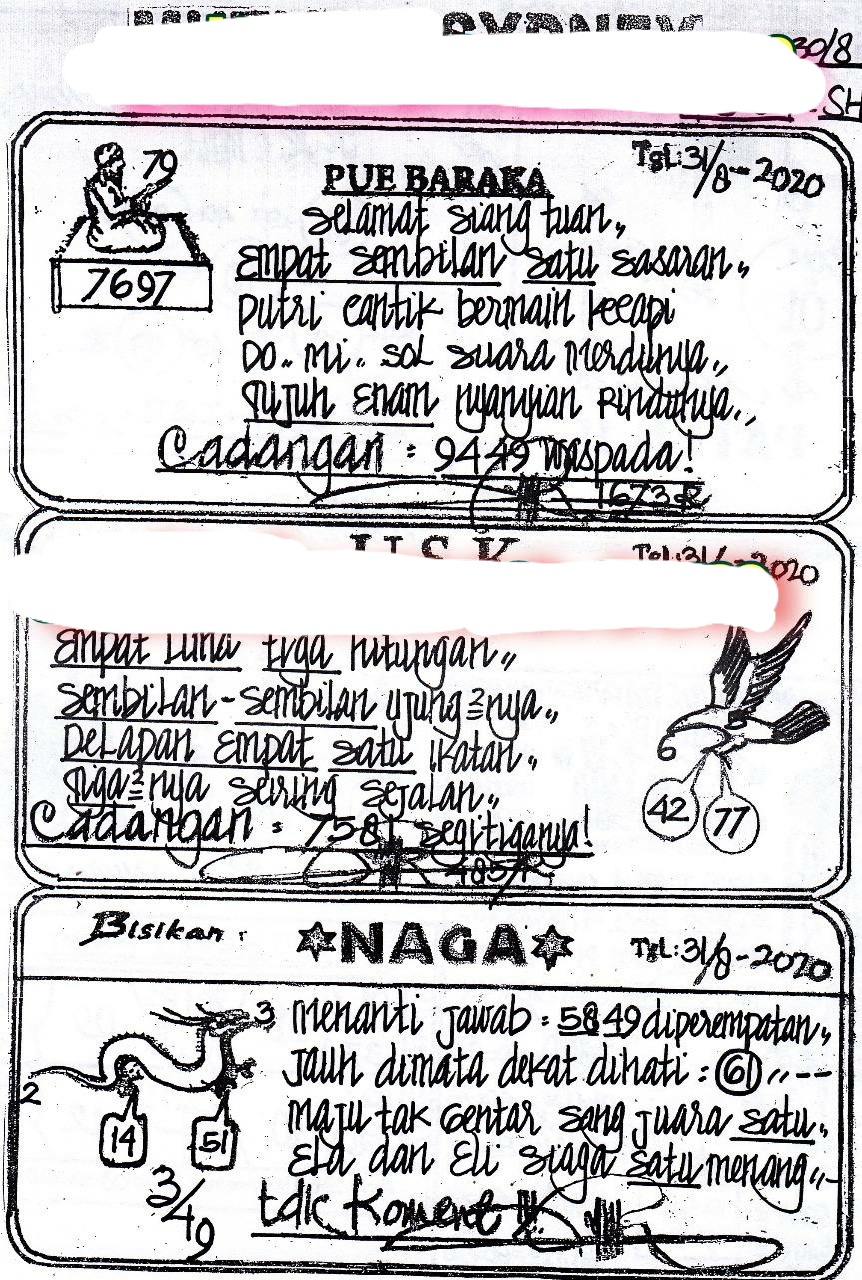 SYDNEY
30/8
SH
79
7697
PUE BARAKA
TGL: 31/8-2020
Selamat siang tuan,,
Empat sembilan satu sasaran,,
Putri cantik bermain kecapi
Do.. mi.. sol suara merdunya,,
Tujuh Enam nyanyian Rindunya.,
Cadangan : 9449 waspada!
1673 R
U.S.K
TGL: 31/ -2020
Empat Lima tiga hitungan,,
Sembilan-sembilan ujung²nya,,
Delapan Empat satu ikatan,,
Tiga²nya seiring sejalan,,
Cadangan : 7581 segitiganya!
6
42
77
Bisikan :
NAGA
TGL: 31/8-2020
3
2
14
51
3/49
Menanti jawab : 5849 diperempatan,,
Jauh dimata dekat dihati : 61 ,,--
Maju tak Gentar sang juara satu,,
Ela dan Eli siaga satu menang,,-
tdk Koment !!